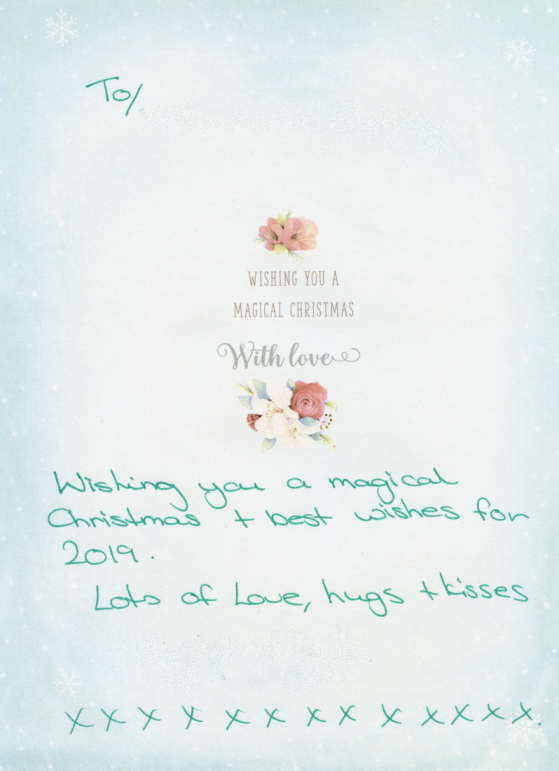 To/
WISHING YOU A
MAGICAL CHRISTMAS
With love
Wishing you a magical
Christmas + best wishes for
2019.
Lots of Love, hugs + kisses
x x x x x x x x x x x x x.